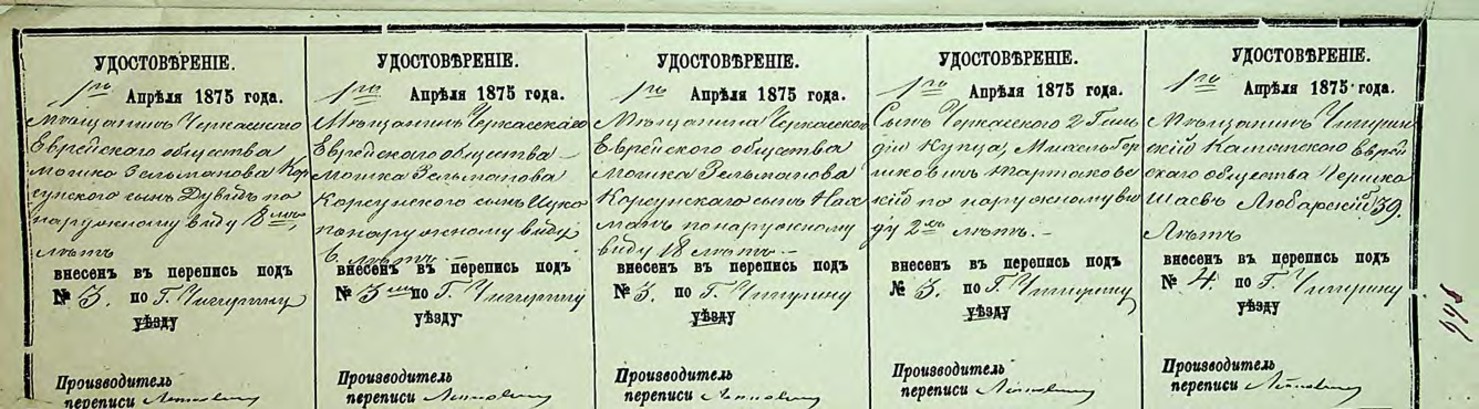 УДОСТОВѢРЕНІЕ.
1го Апрѣля 1875 года.
Мѣщанинъ Черкасскаго
Еврейскаго общества
Мошко Зельманова Кор
сунского сынъ Дувидъ по
наружному виду 8ми
лѣтъ
внесенъ въ перепись подъ
№ 3. по Г. Чигирину
уѣзду
Производитель
переписи
УДОСТОВѢРЕНІЕ.
1го Апрѣля 1875 года.
Мѣщанинъ Черкасскаго
Еврейскаго общества
Мошка Зельманова
Корсунского сынъ Ицко
по наружному виду
6. лѣтъ. –
внесенъ въ перепись подъ
№ 3 по Г. Чигирину
уѣзду
Производитель
переписи
УДОСТОВѢРЕНІЕ.
1го Апрѣля 1875 года.
Мѣщанина Черкасского
Еврейского общества
Мошка Зельманова
Корсунского сынъ Нах
манъ по наружному
виду 18 лѣтъ. –
внесенъ въ перепись подъ
№ 3. по Г. Чигирину
уѣзду
Производитель
переписи
УДОСТОВѢРЕНІЕ.
1го Апрѣля 1875 года.
Сынъ Черкасского 2 Гиль
діи Купца, Гер
шковичъ Тартаковс
кій по наружному ви
ду 2хъ лѣтъ. –
внесенъ въ перепись подъ
№ 3. по Г. Чигирину
уѣзду
Производитель
переписи
УДОСТОВѢРЕНІЕ.
1го Апрѣля 1875 года.
Мѣщанинъ Чигирин
скій Каменского Еврей
скаго общества Гершко
Шаевъ Любарскій 39.
Лѣтъ
внесенъ въ перепись подъ
№ 4. по Г. Чигирину
уѣзду
Производитель
переписи